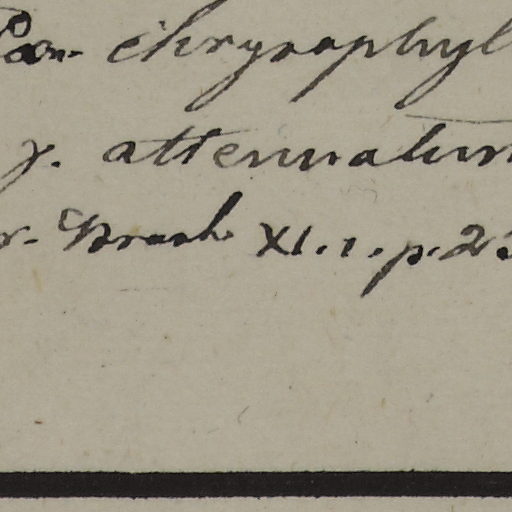 chrysophyl
γ. attenuatum
r. Brash XI. 1. p. 23